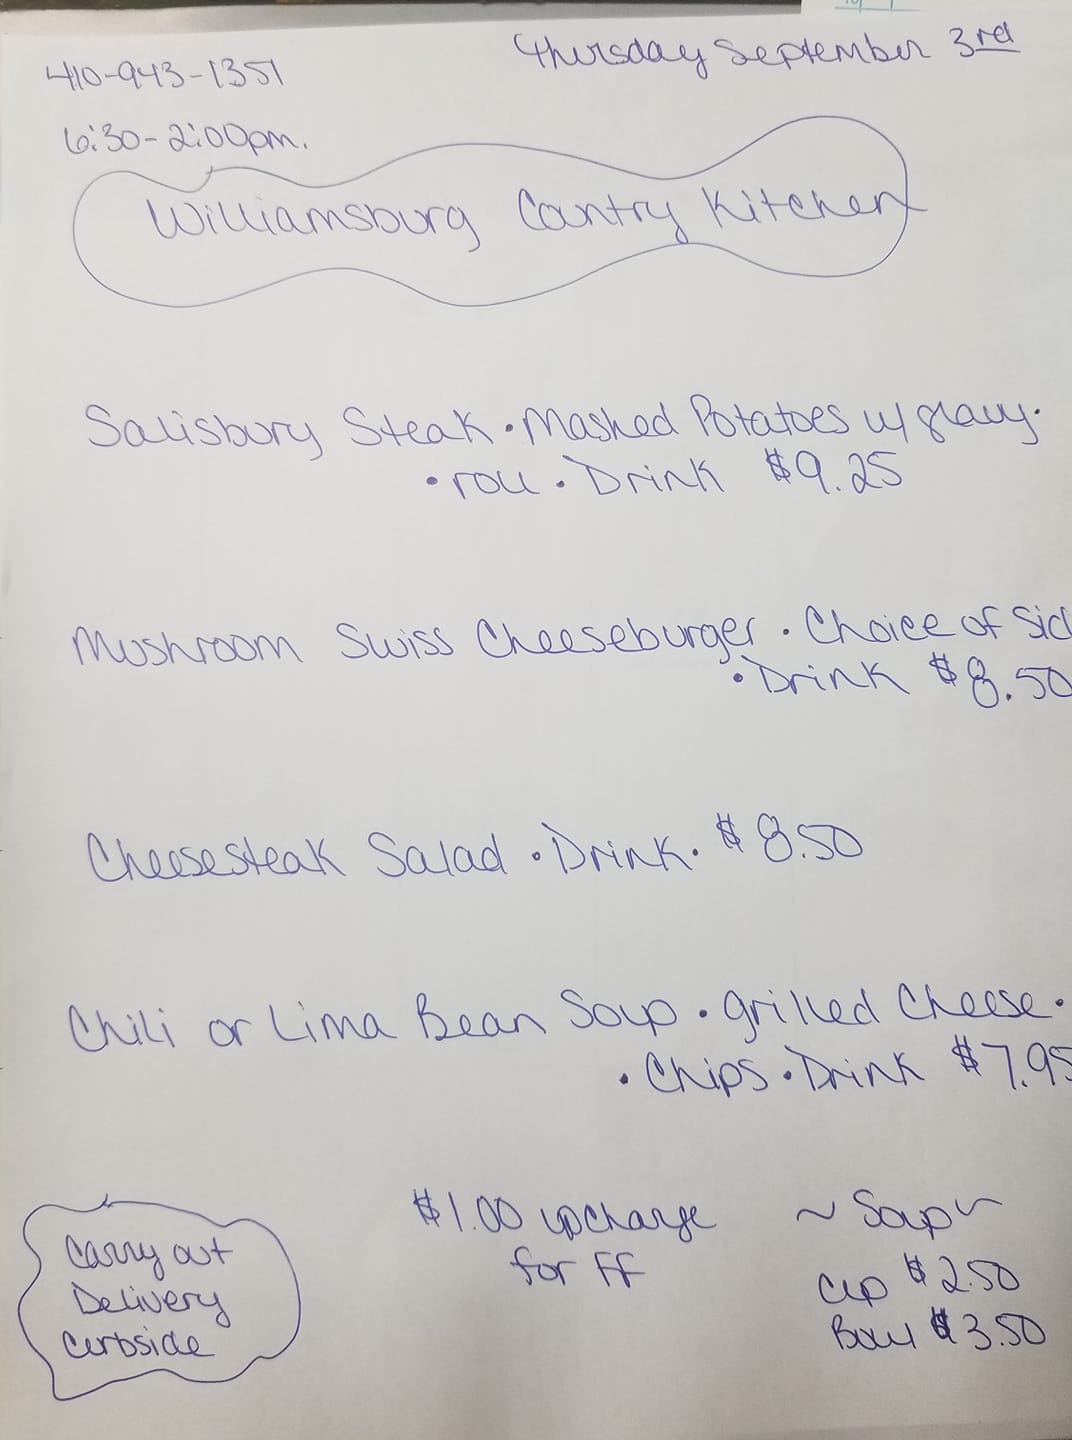 Thursday September 3rd
410-943-1351
6:30-2:00pm.
Williamsburg Country Kitchen
Salisbury Steak • Mashed Potatoes w/ gravy •
• roll • Drink $9.25
Mushroom Swiss Cheeseburger • Choice of Sid
• Drink $8.50
Cheesesteak Salad • Drink • $8.50
Chili or Lima Bean Soup • grilled Cheese •
• Chips • Drink $7.95
$1.00 upcharge
for FF
~ Soup ~
Cup $2.50
Bowl $3.50
Carry out
Delivery
Curbside